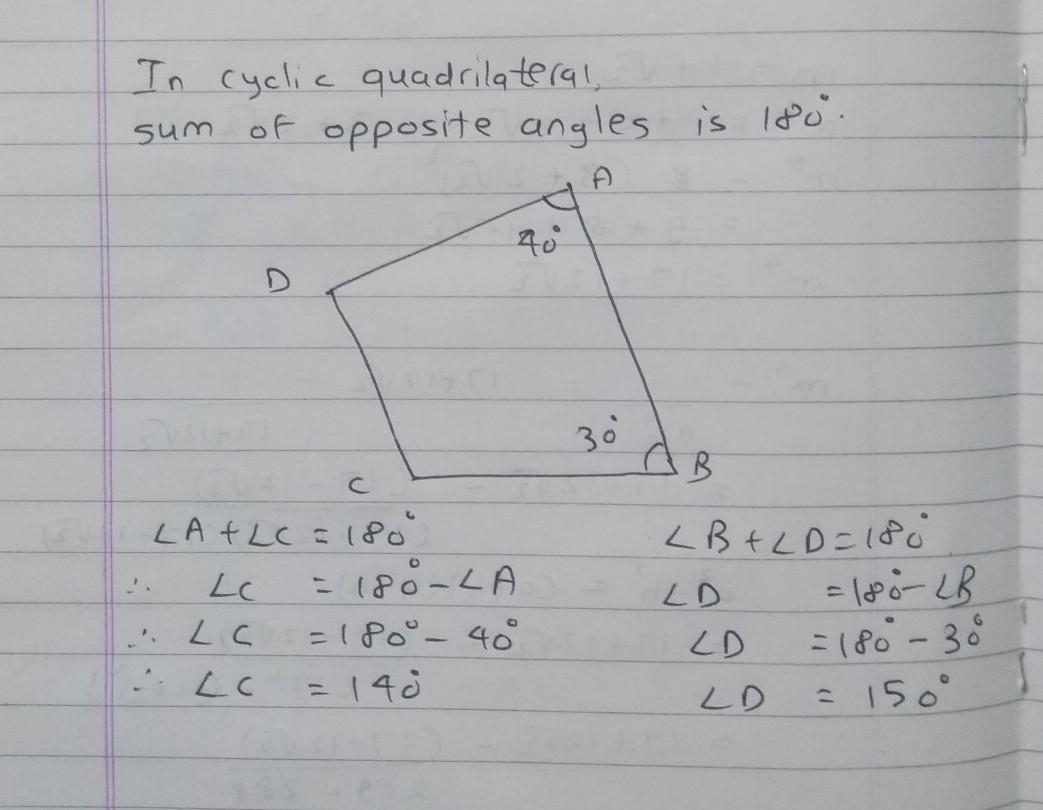 In cyclic quadrilateral,
sum of opposite angles is 180°.
A
40°
D
30°
B
C
∠A + ∠C = 180°
∴ ∠C = 180° - ∠A
∴ ∠C = 180° - 40°
∴ ∠C = 140°
∠B + ∠D = 180°
∠D = 180° - ∠B
∠D = 180° - 30°
∠D = 150°